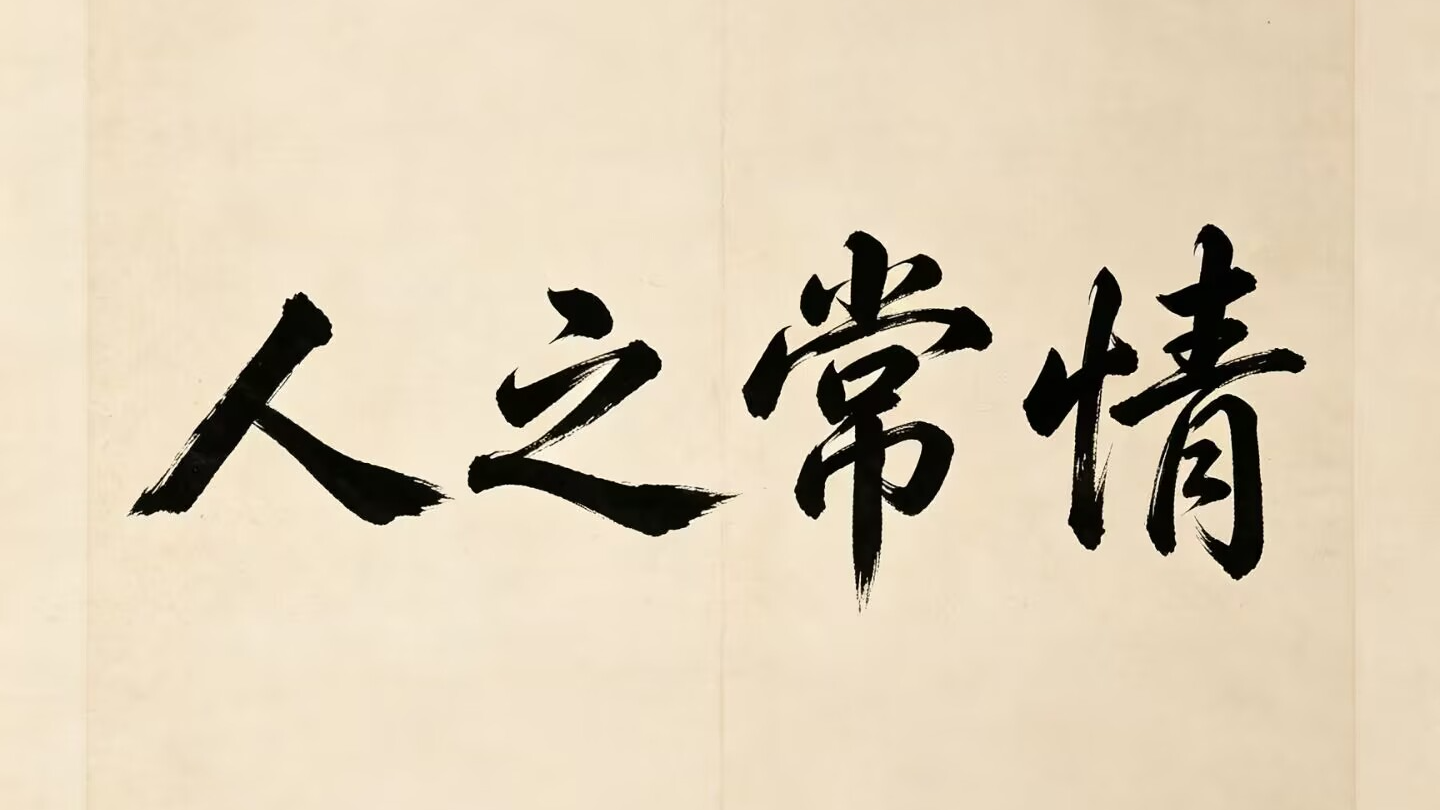 人之常情